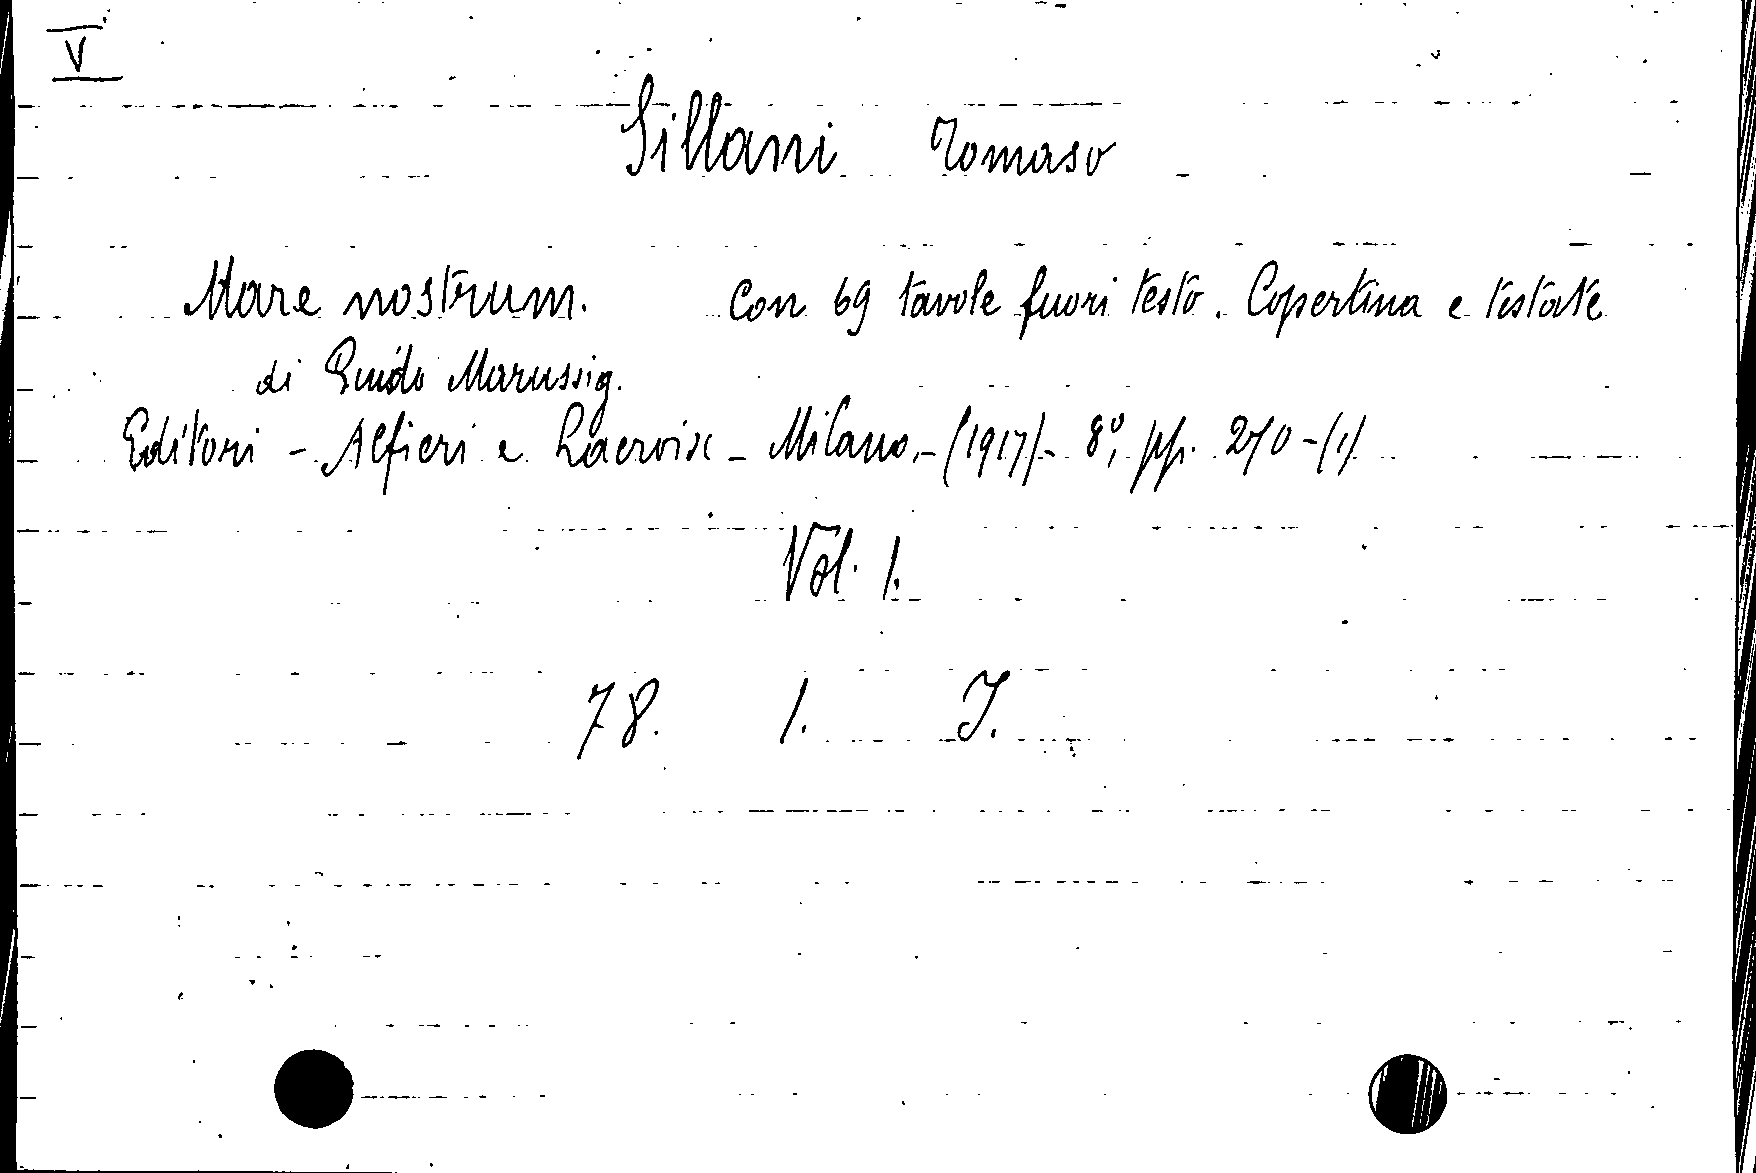 V
Sillani Tomaso
Mare nostrum. Con 69 tavole fuori testo. Copertina e testate
di Guido Marussig.
Editori - Alfieri e Lacroix - Milano. - (1917) - 8°, pp. 270 - (1)
Vol. 1.
78. 1. J.